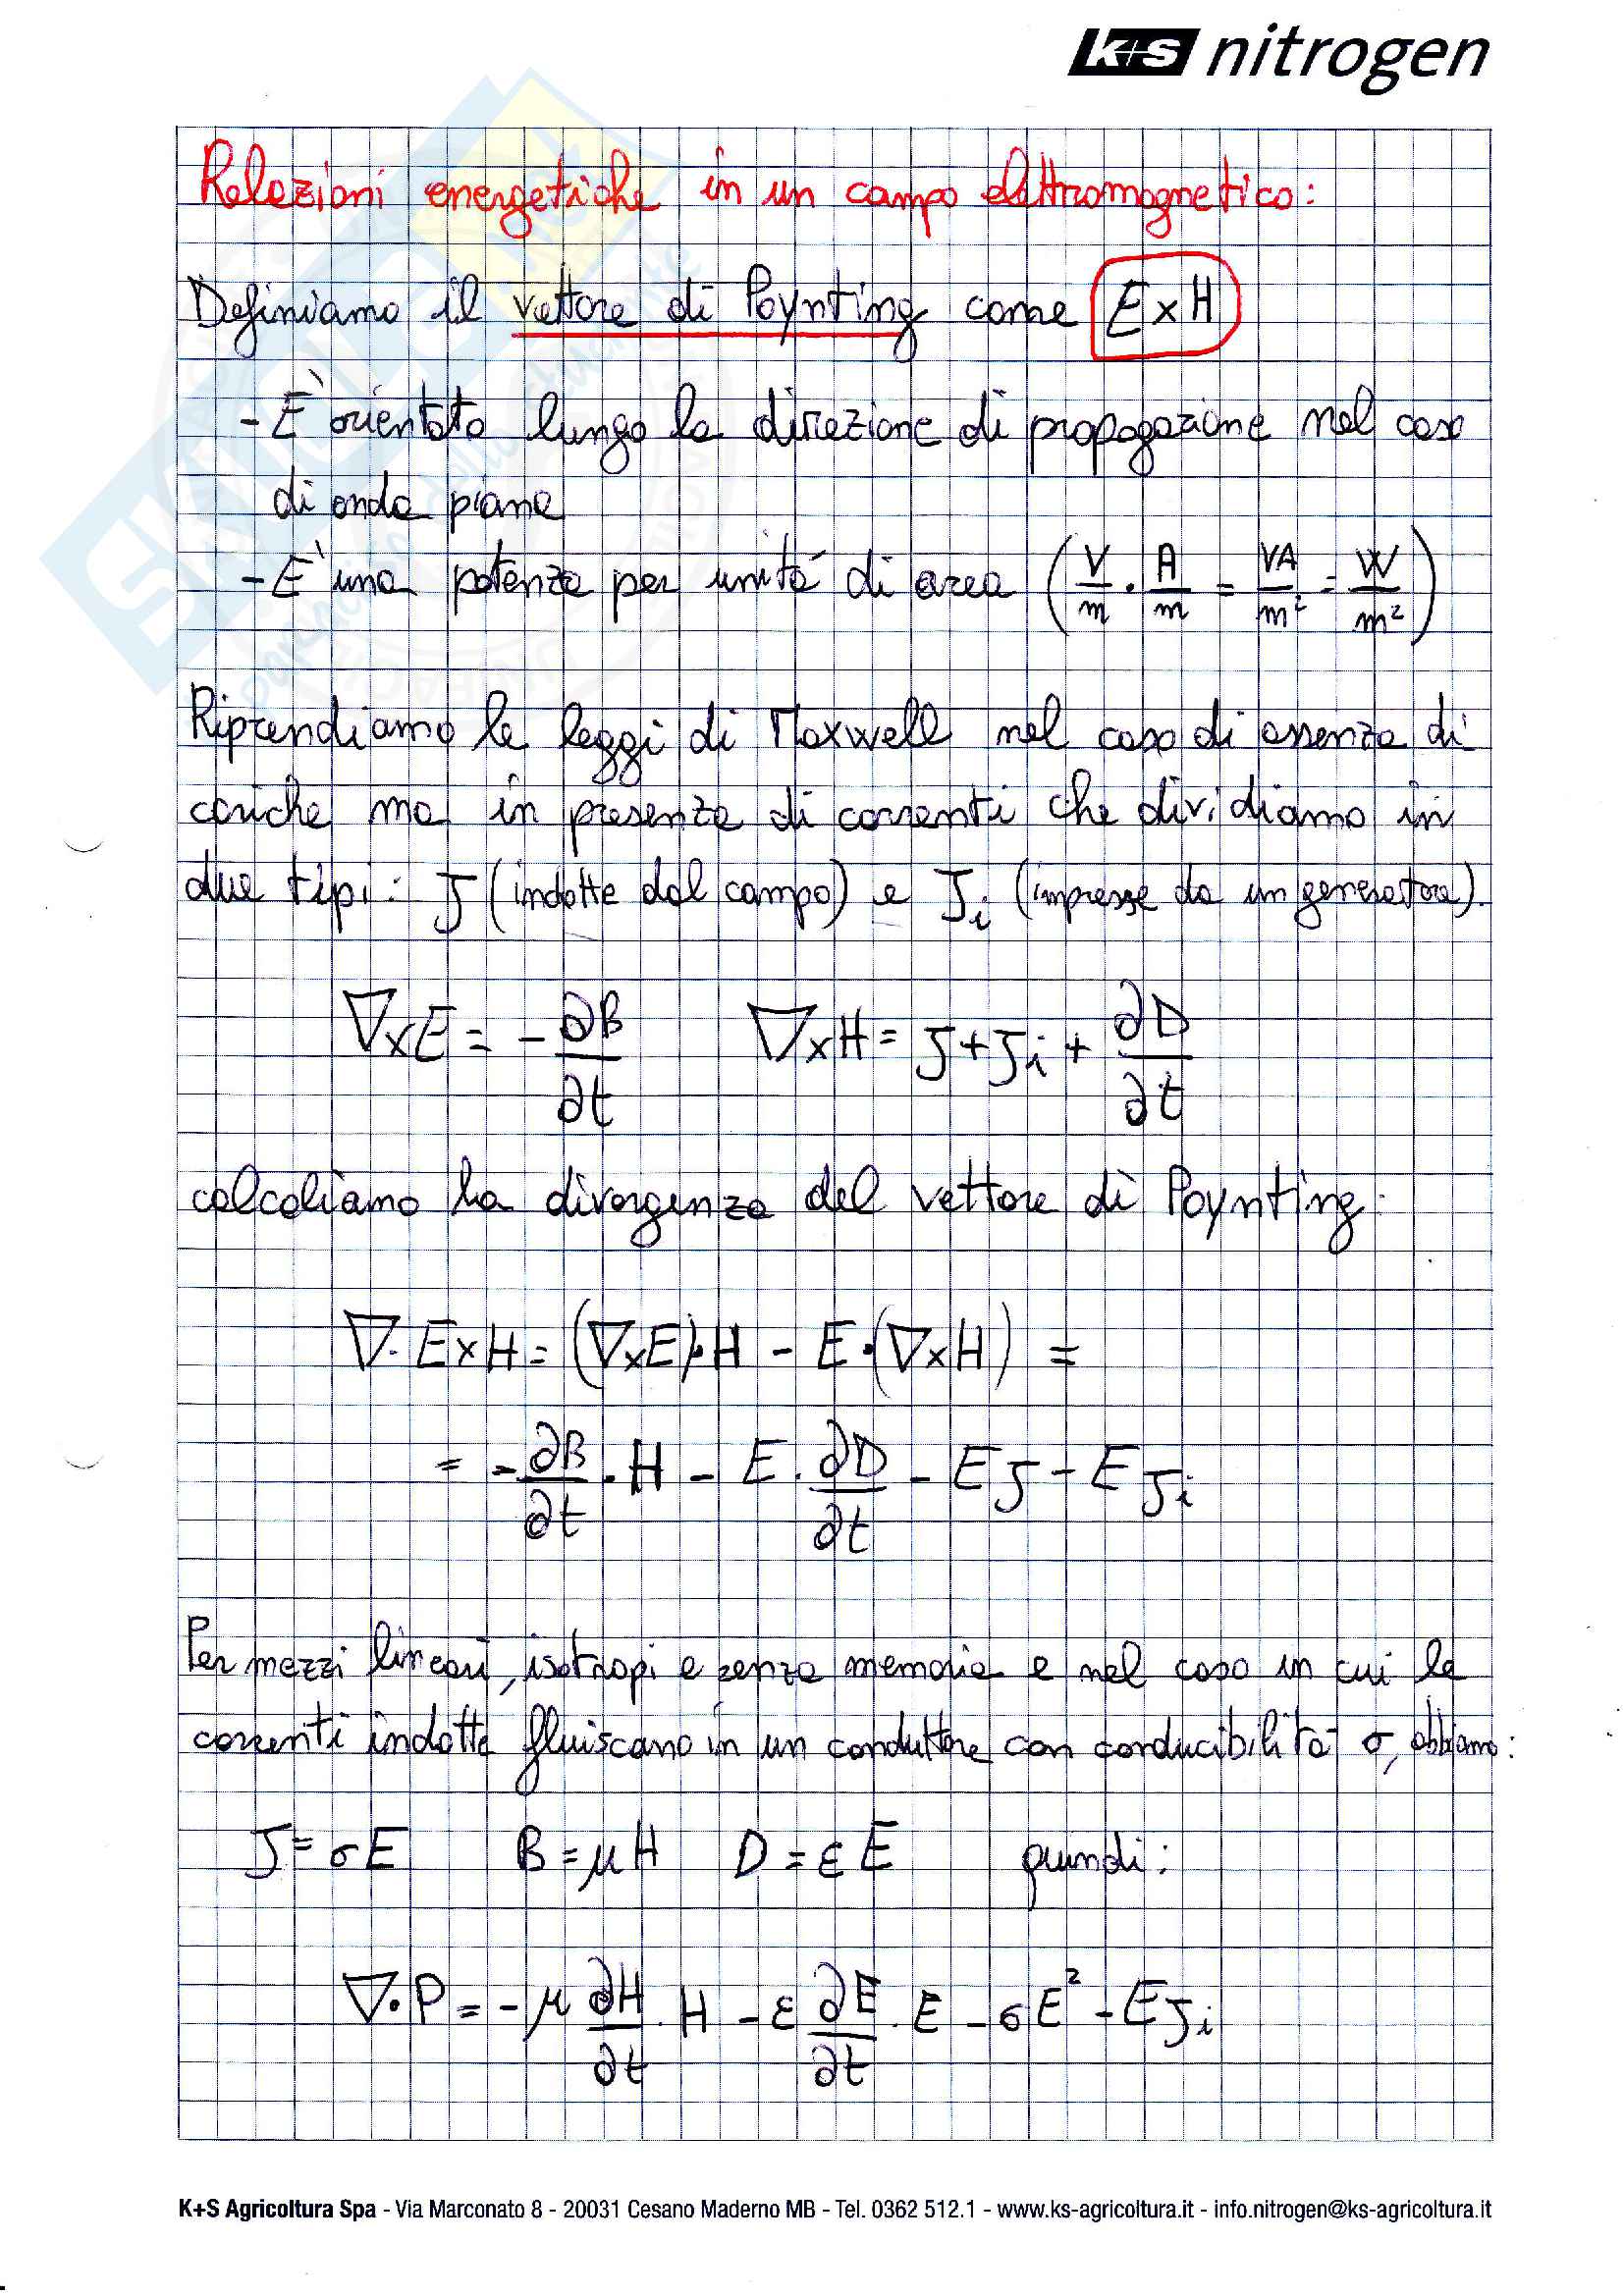 K+S nitrogen
Relazioni energetiche in un campo elettromagnetico:
Definiamo il vettore di Poynting come E×H
- E' orientato lungo la direzione di propagazione nel caso
di onda piana
- E' una potenza per unità di area (V/m · A/m = VA/m² = W/m²)
Riprendiamo le leggi di Maxwell nel caso di assenza di
cariche ma in presenza di correnti che dividiamo in
due tipi: J (indotte dal campo) e Ji (impresse da un generatore).
∇×E = - ∂B/∂t ∇×H = J + Ji + ∂D/∂t
calcoliamo la divergenza del vettore di Poynting:
∇· E×H = (∇×E)·H - E·(∇×H) =
= - ∂B/∂t · H - E · ∂D/∂t - E J - E Ji
Per mezzi lineari, isotropi e senza memoria e nel caso in cui le
correnti indotte fluiscano in un conduttore con conducibilità σ, abbiamo:
J = σE B = μH D = εE quindi:
∇·P = - μ ∂H/∂t · H - ε ∂E/∂t · E - σE² - E Ji
K+S Agricoltura Spa - Via Marconato 8 - 20031 Cesano Maderno MB - Tel. 0362 512.1 - www.ks-agricoltura.it - info.nitrogen@ks-agricoltura.it